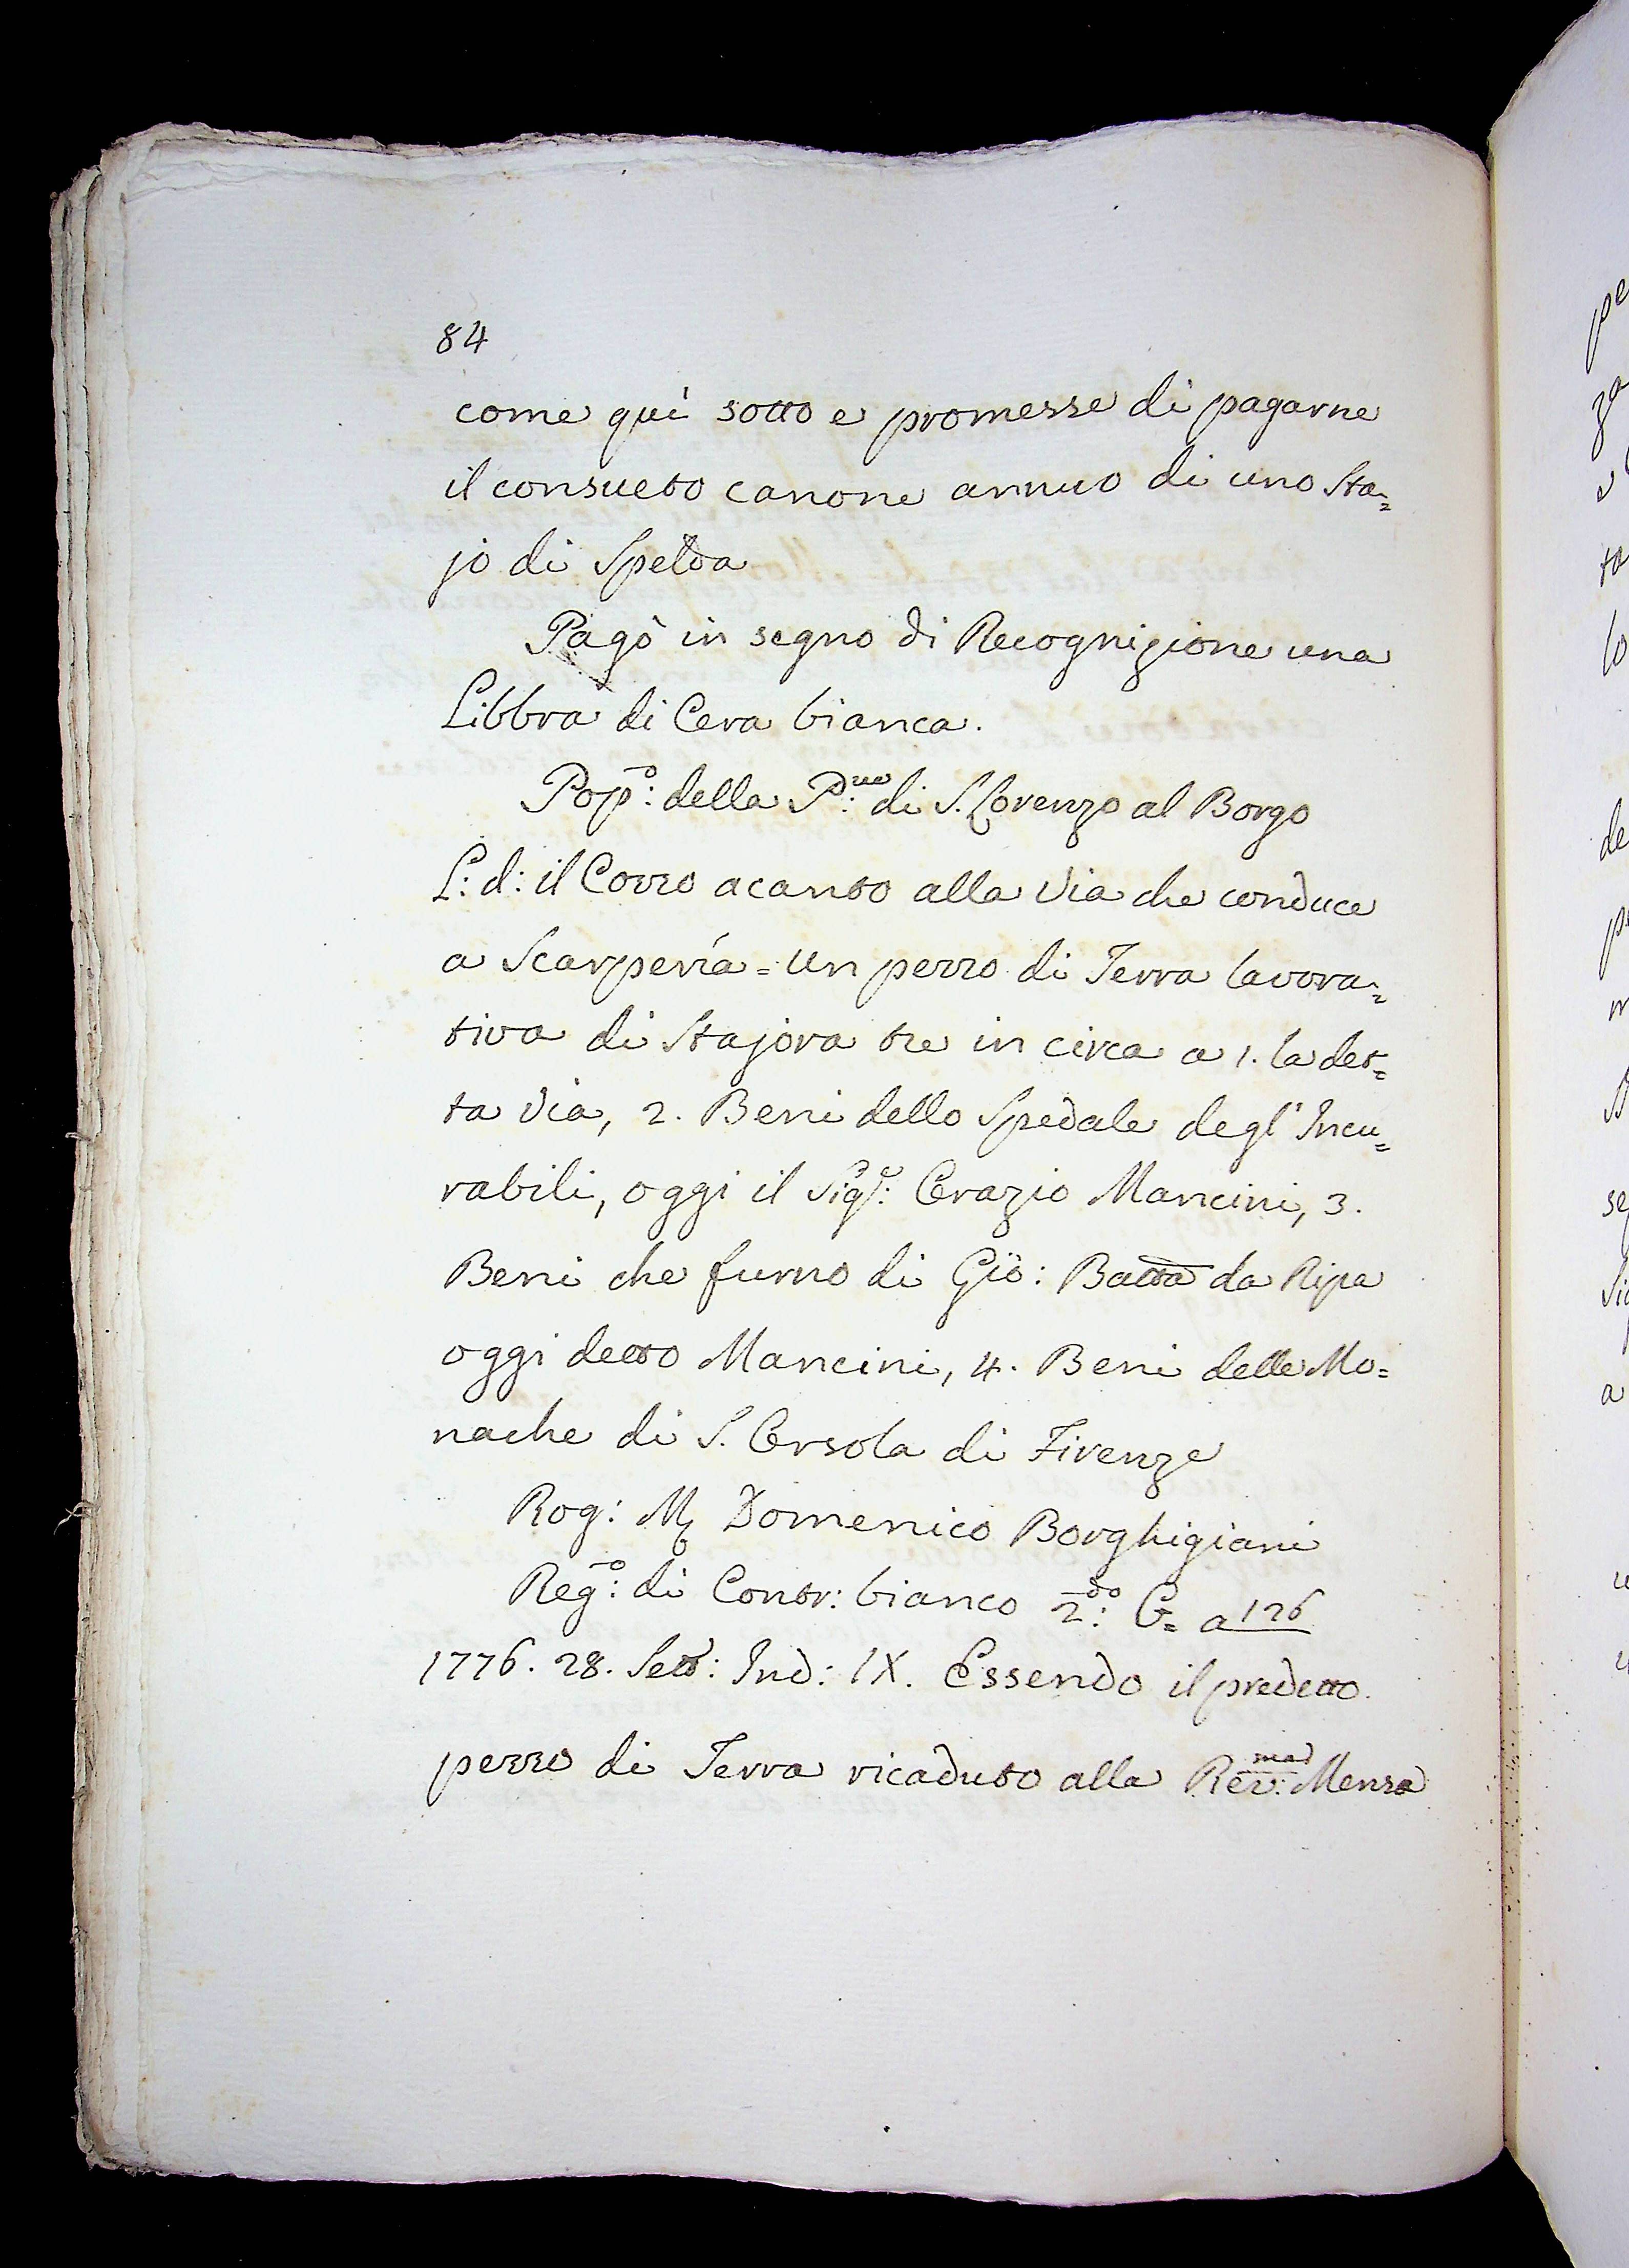 84
come quì sotto e promesse di pagarne
il consueto canone annuo di uno Sta=
jo di Spelda
Pagò in segno di Recognizione una
Libbra di Cera bianca.
Pop.o: della P.ve: di S. Lorenzo al Borgo
L: d: il Cozzo acanto alla Via che conduce
a Scarpería = Un pezzo di Terra lavora=
tiva di Stajora tre in circa a 1. la det=
ta Via, 2. Beni dello Spedale degl' Incu=
rabili, oggi il Sig.e: Orazio Mancini, 3.
Beni che furno di Gio: Batta da Ripa
oggi detto Mancini, 4. Beni delle Mo=
nache di S. Orsola di Firenze
Rog: M Domenico Borghigiani
Reg.o: di Contr: bianco 2.do: G= a 126
1776. 28. Sett: Ind: IX. Essendo il predetto
pezzo di Terra ricaduto alla Rev.ma: Mensa